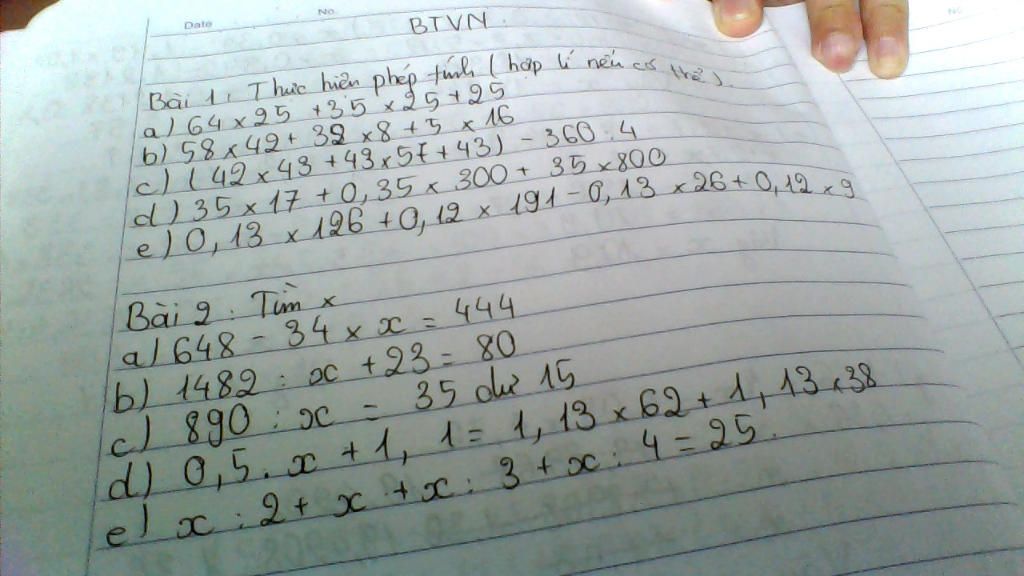 Date
No.
BTVN.
Bài 1. Thực hiện phép tính (hợp lí nếu có thể).
a) 64 x 25 + 35 x 25 + 25
b) 58 x 42 + 32 x 8 + 5 x 16
c) (42 x 43 + 43 x 57 + 43) - 360 : 4
d) 35 x 17 + 0,35 x 300 + 35 x 800
e) 0,13 x 126 + 0,12 x 191 - 0,13 x 26 + 0,12 x 9
Bài 2. Tìm x
a) 648 - 34 x x = 444
b) 1482 : x + 23 = 80
c) 890 : x = 35 dư 15
d) 0,5 . x + 1,1 = 1,13 x 62 + 1,13 x 38
e) x : 2 + x + x : 3 + x : 4 = 25.